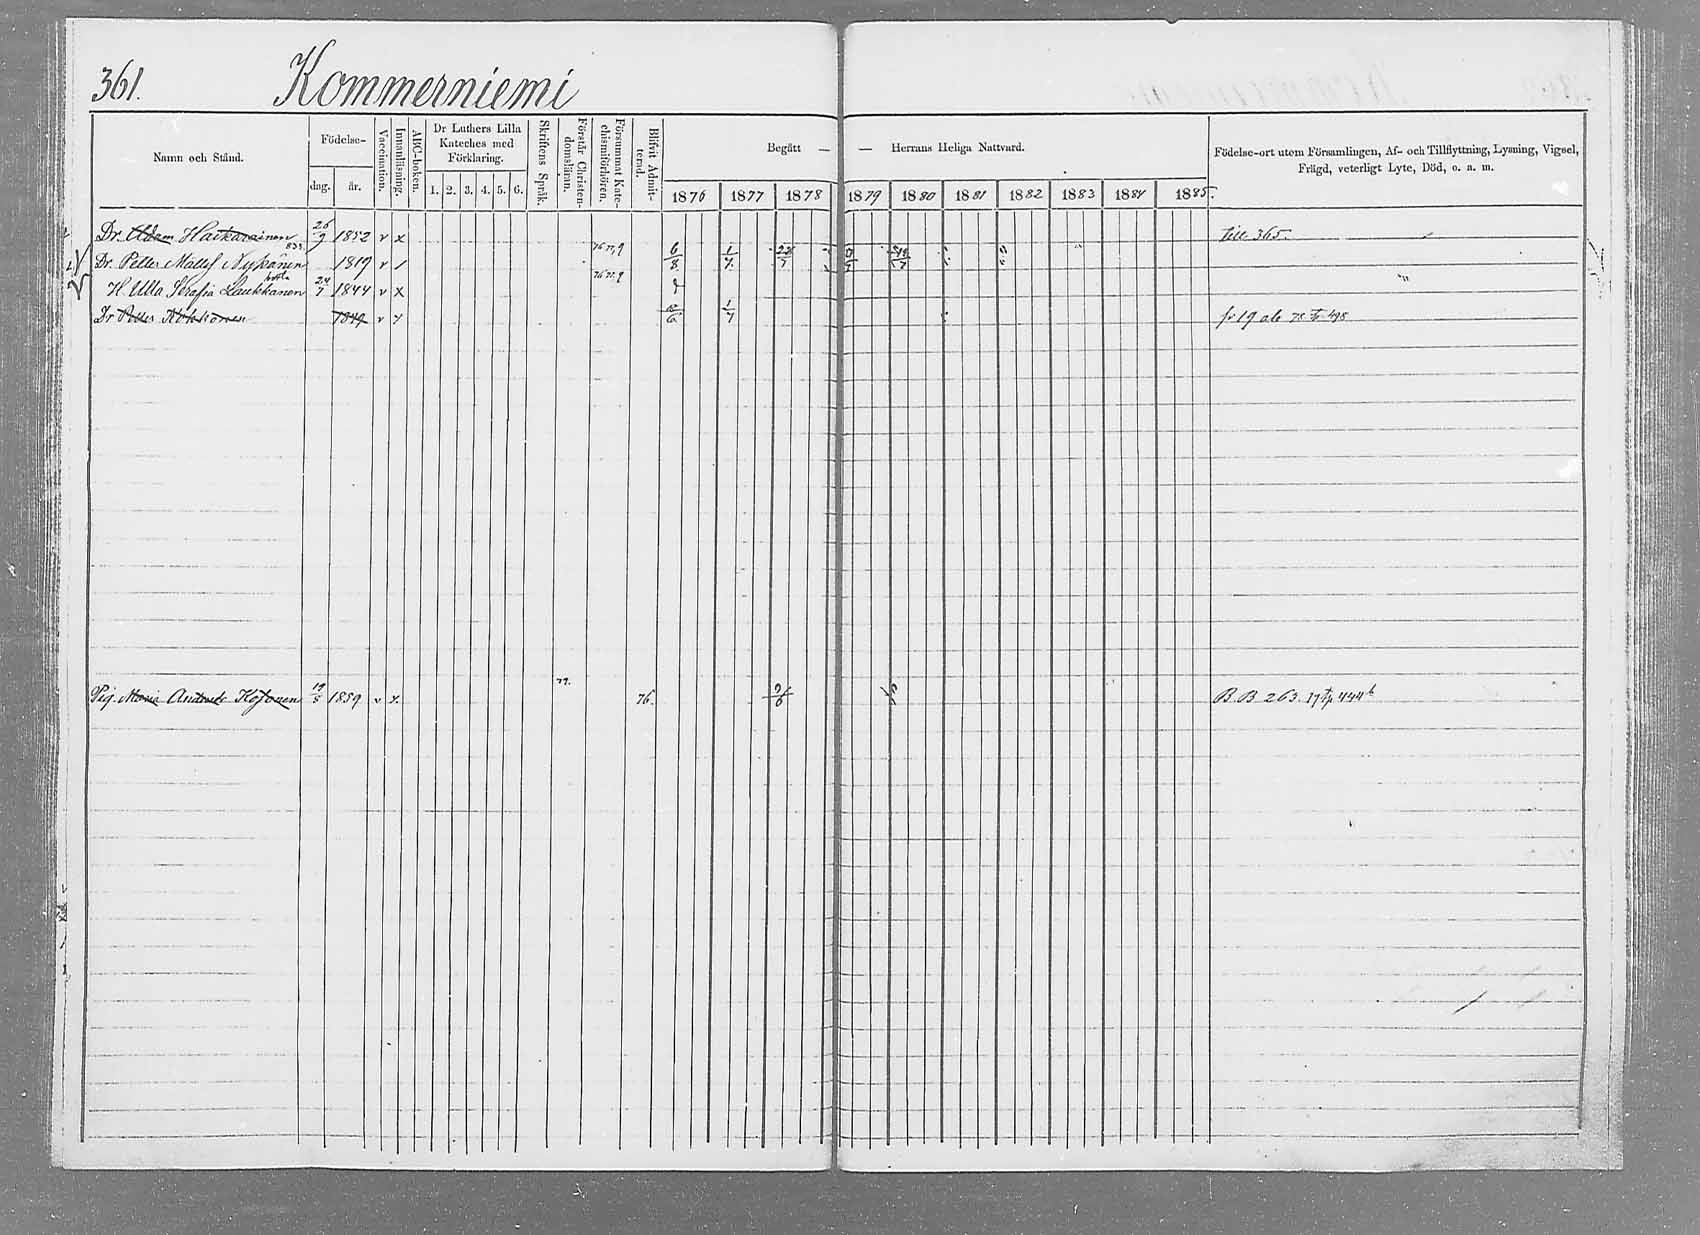 361. Kommerniemi
Namn och Stånd.
Födelse-
dag. år.
Vaccination.
Innanläsning.
ABC-boken.
Dr Luthers Lilla
Kateches med
Förklaring.
1. 2. 3. 4. 5. 6.
Skriftens Språk.
Förstår Christen-
domsläran.
Försummat Kate-
chismiförhören.
Blifvit Admit-
terad.
Begått — — Herrans Heliga Nattvard.
1876 1877 1878 1879 1880 1881 1882 1883 1884 1885.
Födelse-ort utom Församlingen, Af- och Tillflyttning, Lysning, Vigsel,
Frägd, veterligt Lyte, Död, o. a. m.
Dr. Adam Haikarainen 26/9 1852 v x till 365.
Dr. Petter Mattsf Nykänen 1819 v / 76 77, 9 6/8 1/7
H. Ulla Serafia Laukkanen 24/7 1844 v x
Dr Petter Kokkonen 1849 v 1/7 fr 19
79.
Pig. Maria Andersdr Kosonen 19/5 1859 v x. 76. B. B 263.